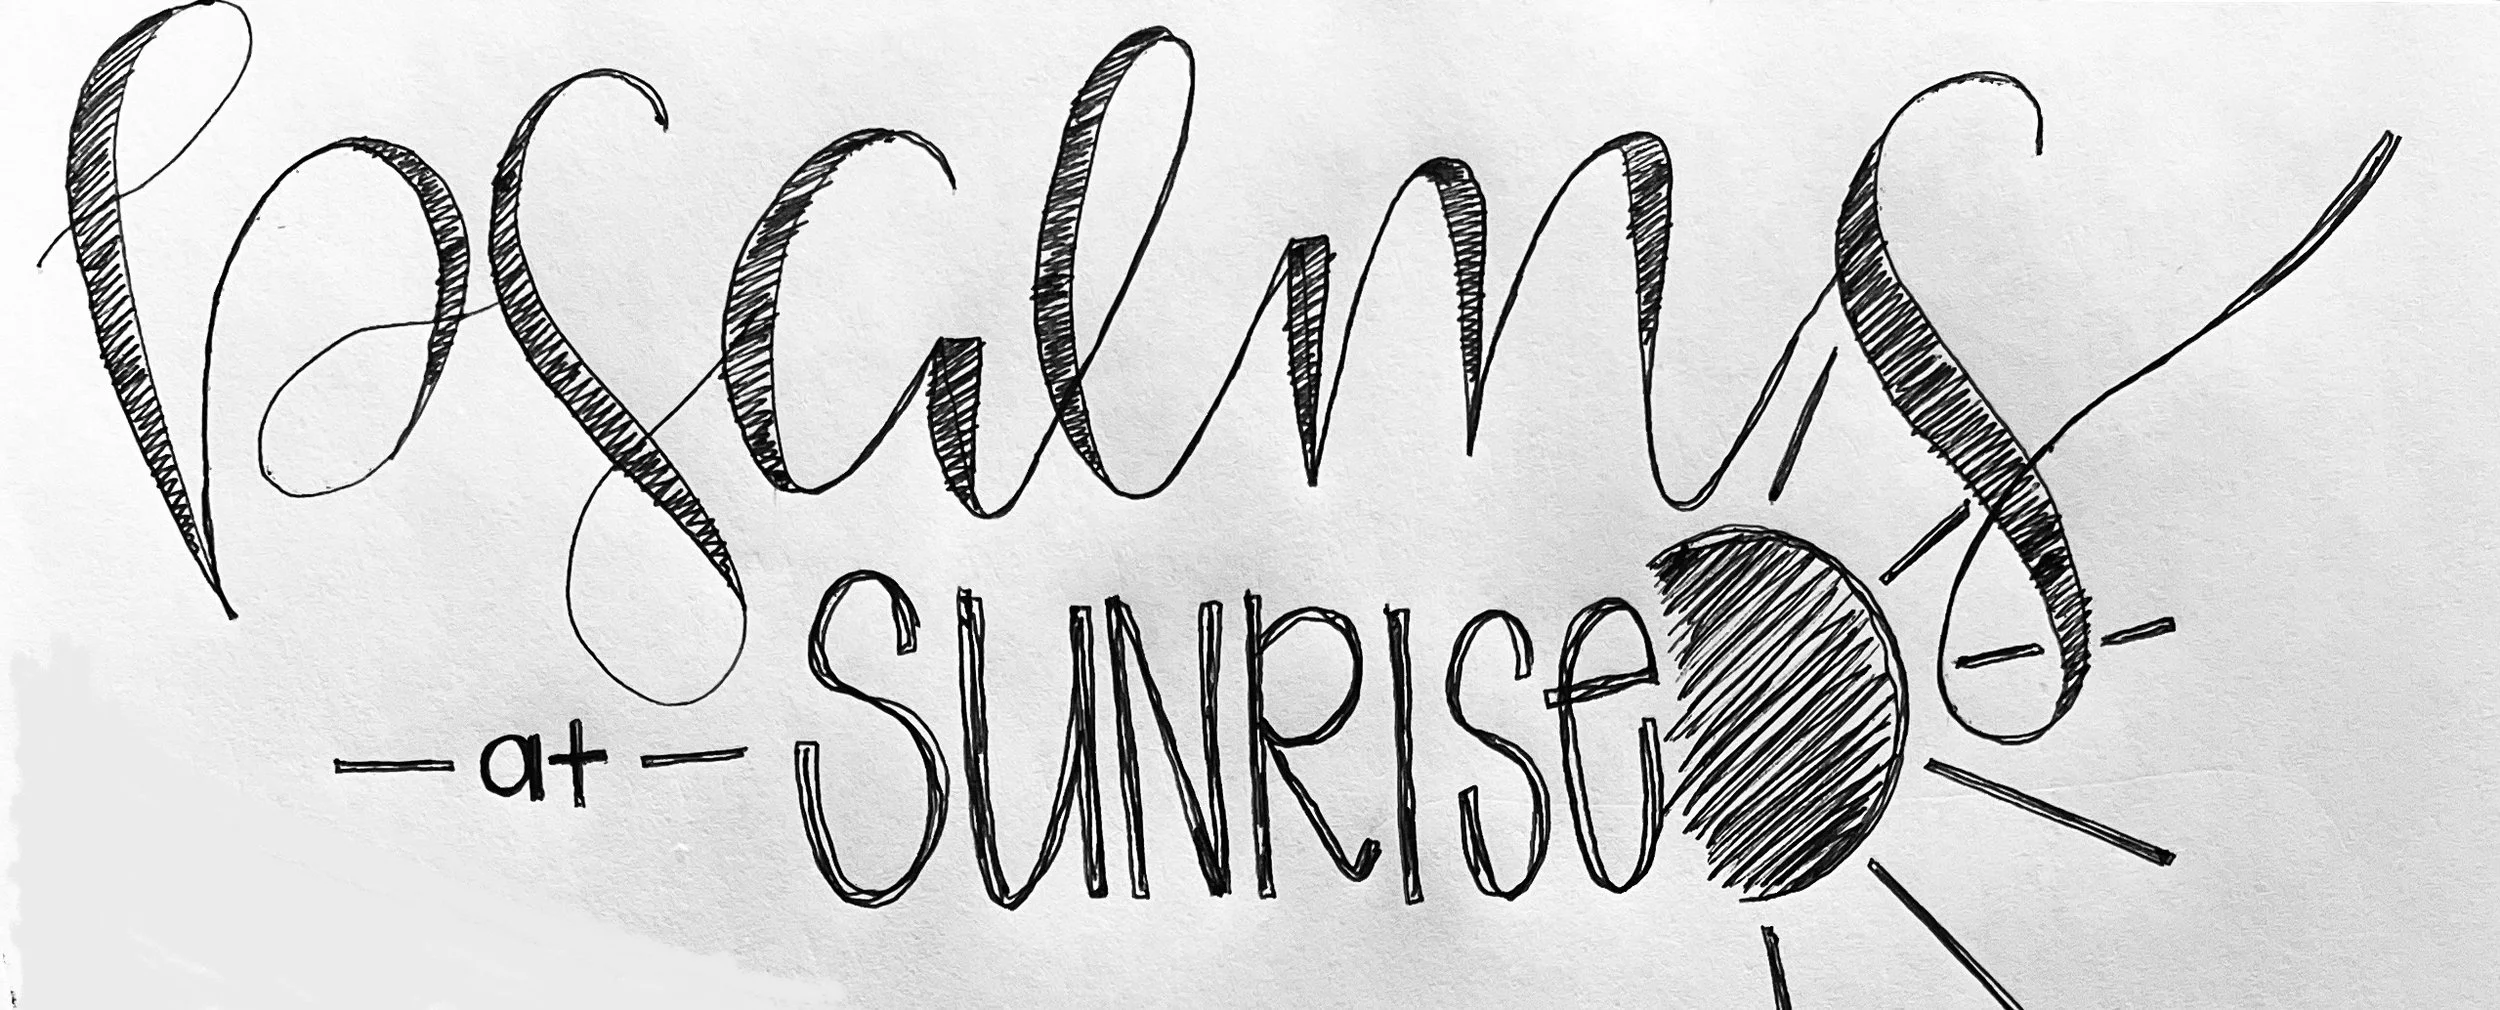 Psalms
- at - SUNRISe